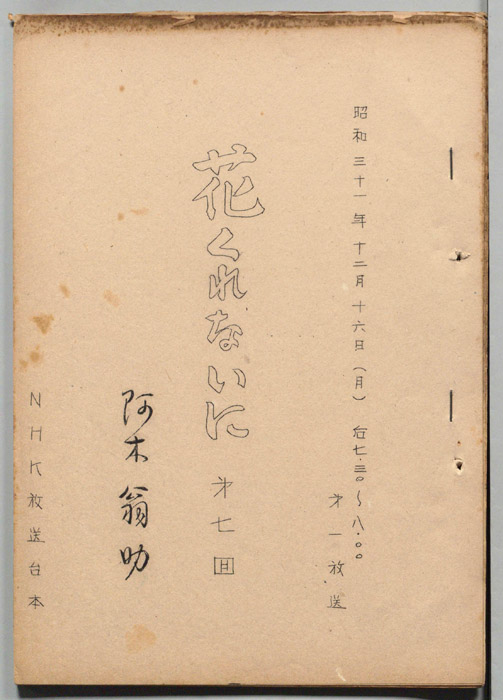 昭和三十一年十二月十六日(月)后七.三〇〜八.〇〇
第一放送
花くれないに
第七回
阿木翁助
NHK放送台本